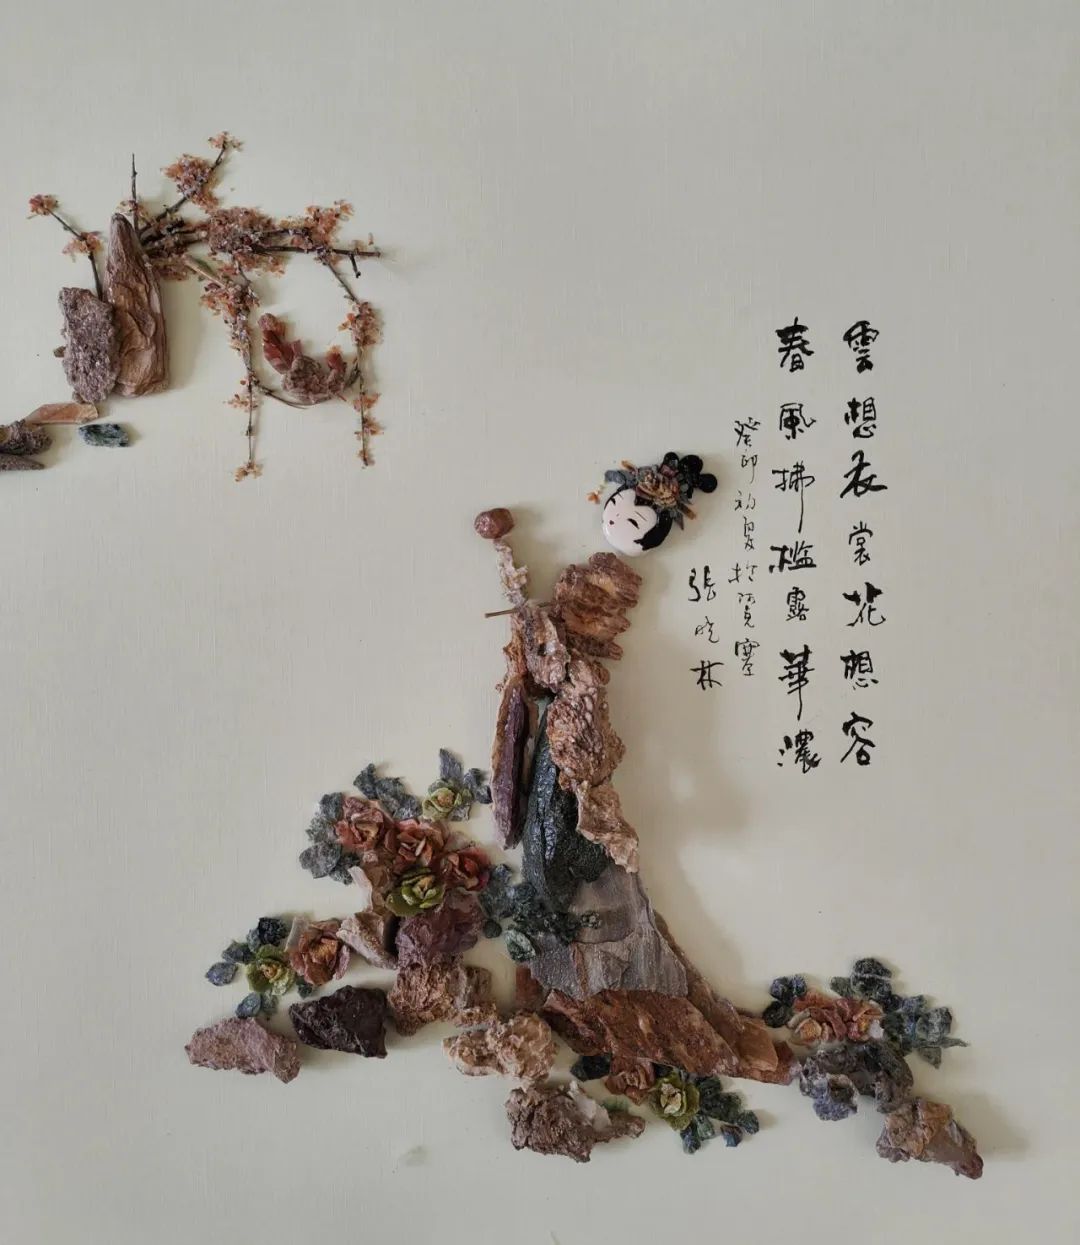 雲想衣裳花想容
春風拂檻露華濃
癸卯初夏於覽
張曉林